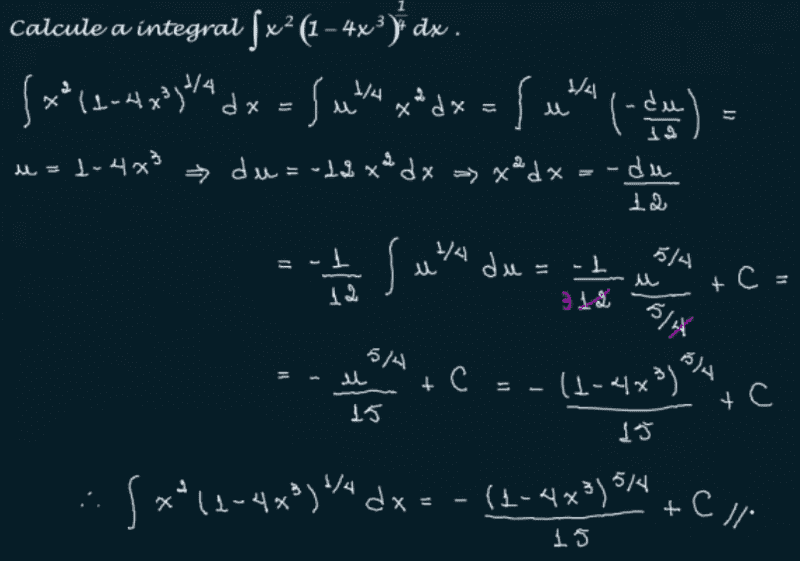 Calcule a integral ∫ x² (1 − 4x³)^(1/4) dx .
∫ x² (1-4x³)^(1/4) dx = ∫ u^(1/4) x² dx = ∫ u^(1/4) (-du/12) =
u = 1-4x³ ⇒ du = -12x² dx ⇒ x² dx = -du/12
= -1/12 ∫ u^(1/4) du = -1/12 3 u^(5/4)/(5/4) + C =
= - u^(5/4)/15 + C = - (1-4x³)^(5/4)/15 + C
∴ ∫ x² (1-4x³)^(1/4) dx = - (1-4x³)^(5/4)/15 + C //.